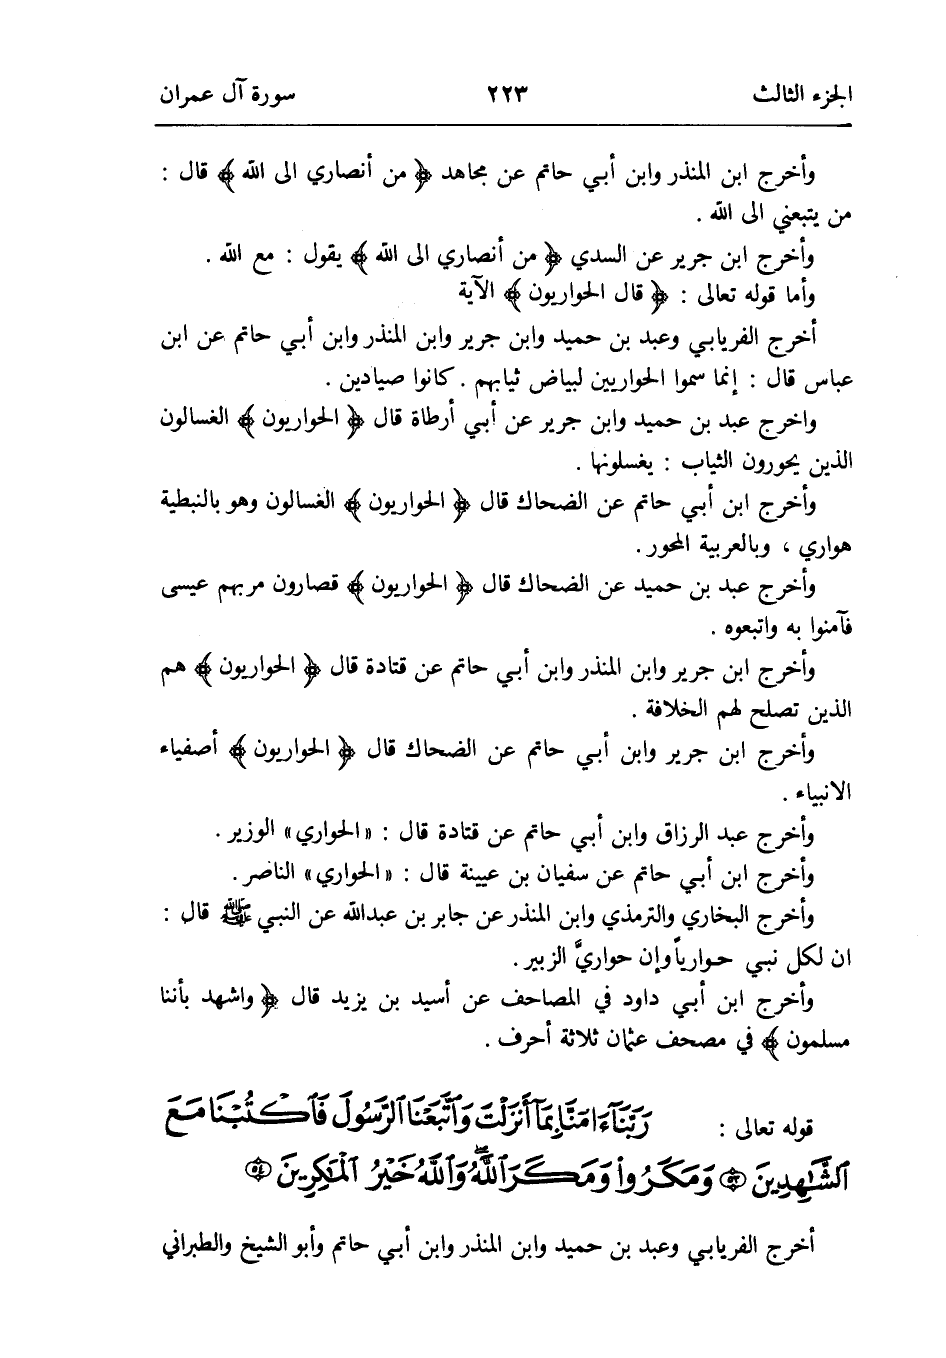 الجزء الثالث ٢٢٣ سورة آل عمران
وأخرج ابن المنذر وابن أبي حاتم عن مجاهد ﴿ من أنصاري الى الله ﴾ قال :
من يتبعني الى الله .
وأخرج ابن جرير عن السدي ﴿ من أنصاري الى الله ﴾ يقول : مع الله .
وأما قوله تعالى : ﴿ قال الحواريون ﴾ الآية
أخرج الفريابي وعبد بن حميد وابن جرير وابن المنذر وابن أبي حاتم عن ابن
عباس قال : إنما سموا الحواريين لبياض ثيابهم . كانوا صيادين .
واخرج عبد بن حميد وابن جرير عن أبي أرطاة قال ﴿ الحواريون ﴾ الغسالون
الذين يحورون الثياب : يغسلونها .
وأخرج ابن أبي حاتم عن الضحاك قال ﴿ الحواريون ﴾ الغسالون وهو بالنبطية
هواري ، وبالعربية المحور .
وأخرج عبد بن حميد عن الضحاك قال ﴿ الحواريون ﴾ قصارون مر بهم عيسى
فآمنوا به واتبعوه .
وأخرج ابن جرير وابن المنذر وابن أبي حاتم عن قتادة قال ﴿ الحواريون ﴾ هم
الذين تصلح لهم الخلافة .
وأخرج ابن جرير وابن أبي حاتم عن الضحاك قال ﴿ الحواريون ﴾ أصفياء
الانبياء .
وأخرج عبد الرزاق وابن أبي حاتم عن قتادة قال : «الحواري» الوزير .
وأخرج ابن أبي حاتم عن سفيان بن عيينة قال : «الحواري» الناصر .
وأخرج البخاري والترمذي وابن المنذر عن جابر بن عبدالله عن النبي ﷺ قال :
ان لكل نبي حوارياً وإن حواريَّ الزبير .
وأخرج ابن أبي داود في المصاحف عن أسيد بن يزيد قال ﴿ واشهد بأننا
مسلمون ﴾ في مصحف عثمان ثلاثة أحرف .
قوله تعالى : رَبَّنَآ ءَامَنَّا بِمَآ أَنزَلْتَ وَٱتَّبَعْنَا ٱلرَّسُولَ فَٱكْتُبْنَا مَعَ
ٱلشَّٰهِدِينَ ﴿٥٣﴾ وَمَكَرُوا۟ وَمَكَرَ ٱللَّهُ ۖ وَٱللَّهُ خَيْرُ ٱلْمَٰكِرِينَ ﴿٥٤﴾
أخرج الفريابي وعبد بن حميد وابن المنذر وابن أبي حاتم وأبو الشيخ والطبراني